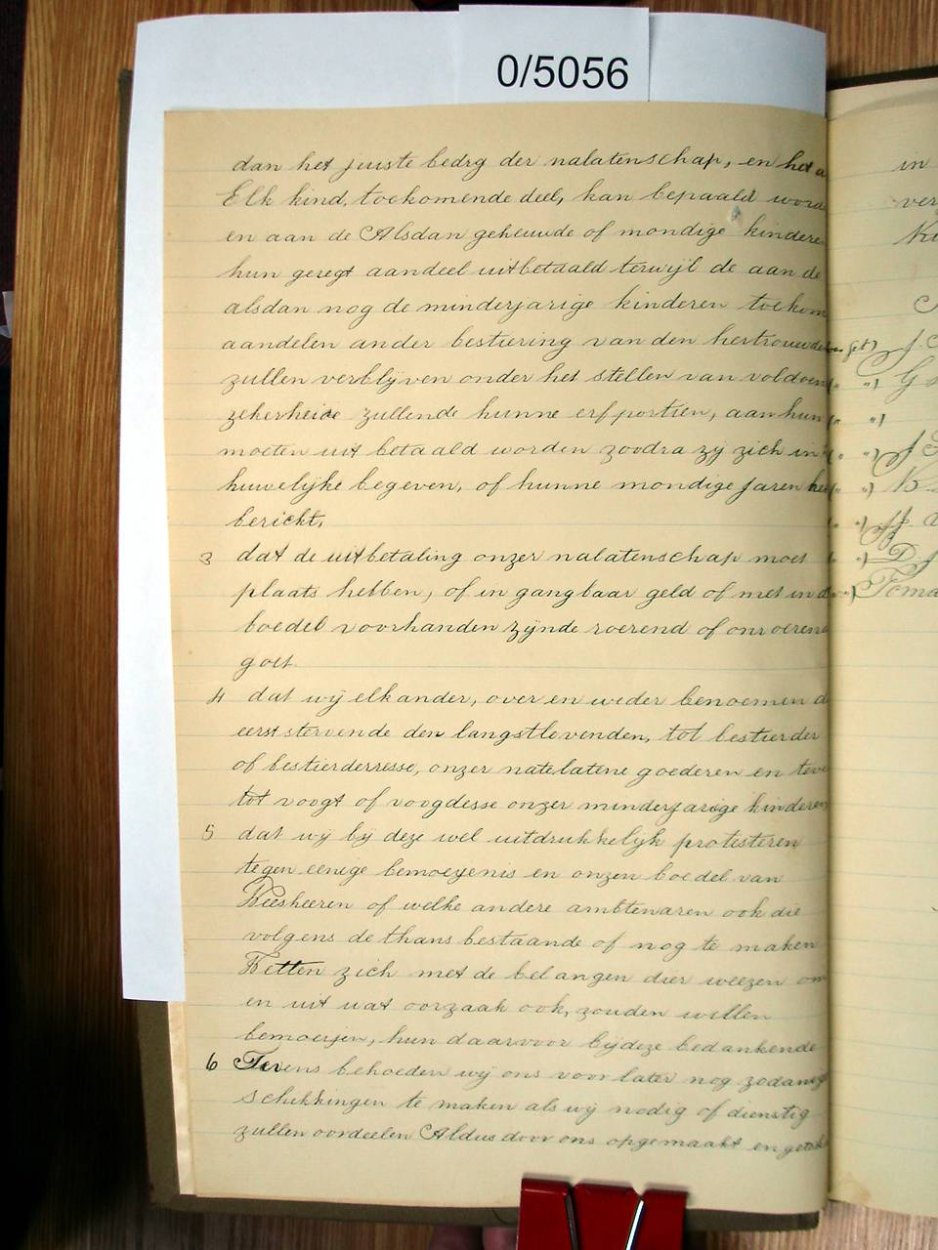 0/5056
dan het juiste bedrg der nalatenschap, en het a
Elk kind, toekomende deel, kan bepaald word
en aan de Alsdan gehuwde of mondige kindere
hun geregt aandeel uitbetaald terwijl de aan de
alsdan nog de minderjarige kinderen toekom
aandelen ander bestiering van den hertrouwde
zullen verblijven onder het stellen van voldoen
zekerheide zullende hunne erfportien, aan hun
moeten uit betaald worden zoodra zij zich in
huwelijke begeven, of hunne mondige jaren he
bericht,
3 dat de uitbetaling onzer nalatenschap moet
plaats hebben, of in gangbaar geld of met in d
boedel voorhanden zijnde roerend of onroerend
goet.
4 dat wij elkander, over en weder benoemen d
eerststervende den langstlevenden, tot bestierder
of bestierderesse, onzer natelatene goederen en teve
tot voogt of voogdesse onzer minderjarige kinderen
5 dat wij bij deze wel uitdrukkelijk protesteren
tegen eenige bemoeyenis en onzen boedel van
Weesheeren of welke andere ambtenaren ook die
volgens de thans bestaande of nog te maken
Wetten zich met de belangen dier weezen om
en uit wat oorzaak ook, zouden willen
bemoeijen, hun daarvoor bijdeze bedankende
6 Tevens behoeden wij ons voor later nog zodanige
schikkingen te maken als wij nodig of dienstig
zullen oordeelen Aldus door ons opgemaakt en getek
in
ver